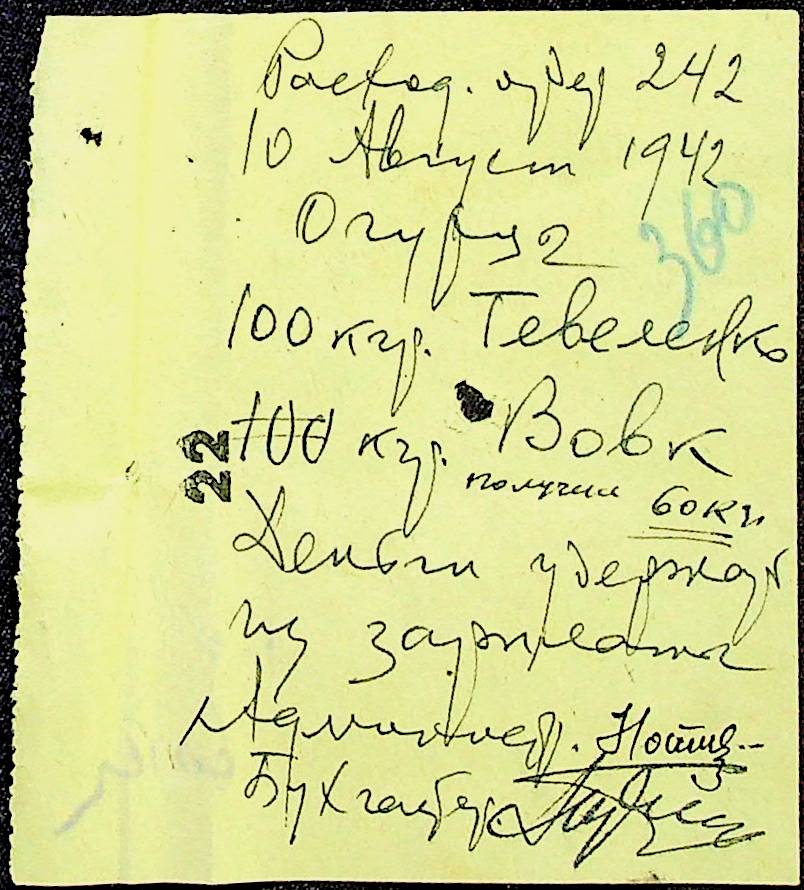 Расход. ордер 242
10 Август 1942
360
Огурцы
100 кгр. Тевеленко
100 кгр. Вовк
22
получил 60 кг.
Деньги удержать
из зарплаты
Администр.
Бухгалтер